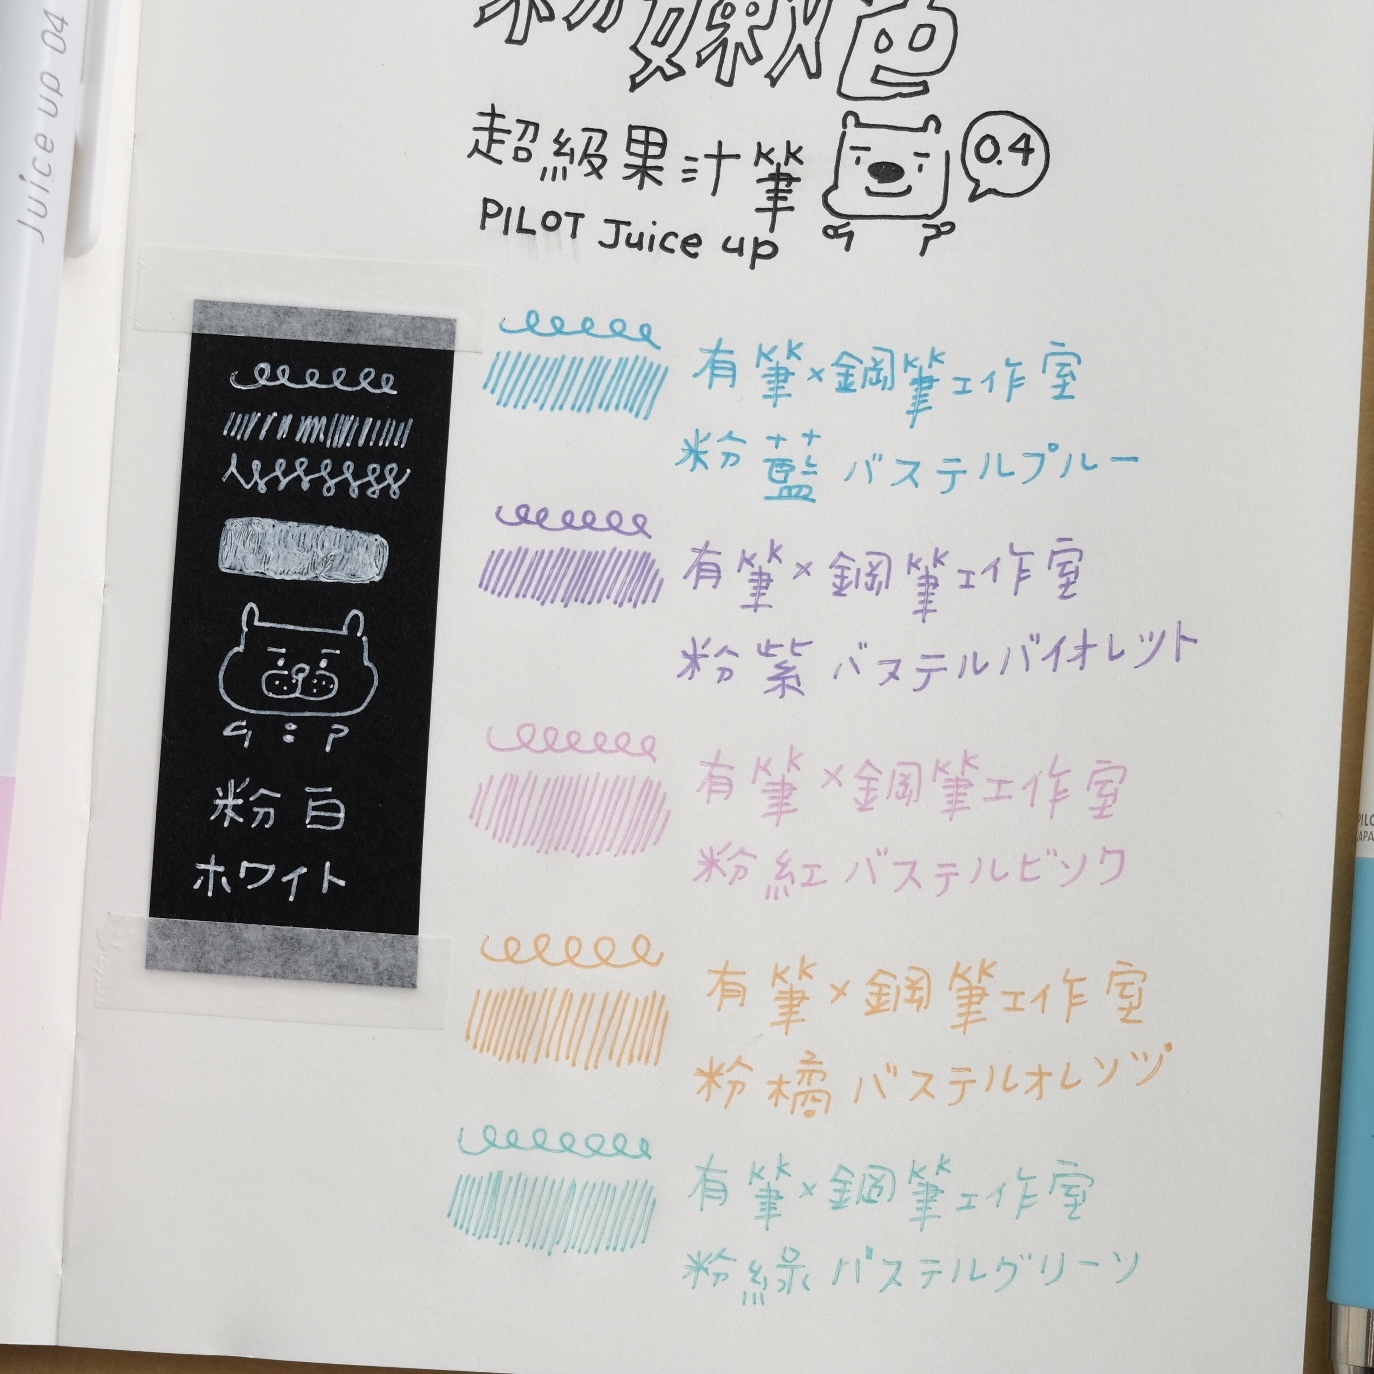 Juice up 04
粉嫩色
超級果汁筆
0.4
PILOT Juice up
有筆×鋼筆工作室
粉藍 パステルブルー
有筆×鋼筆工作室
粉紫 パステルバイオレット
有筆×鋼筆工作室
粉紅 パステルピンク
有筆×鋼筆工作室
粉橘 パステルオレンジ
有筆×鋼筆工作室
粉綠 パステルグリーン
粉白
ホワイト